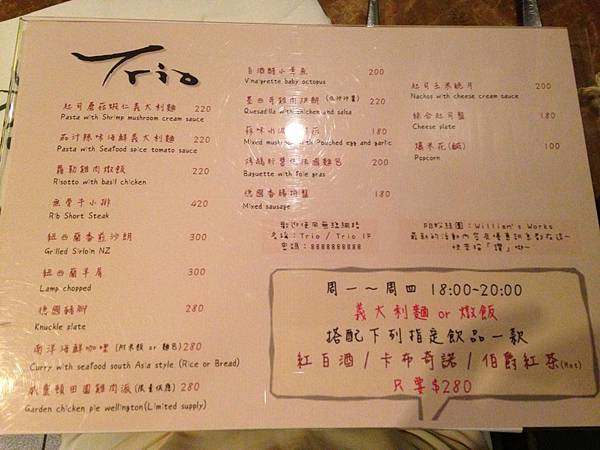 Trio
起司蘑菇蝦仁義大利麵 220
Pasta with Shrimp mushroom cream sauce
茄汁辣味海鮮義大利麵 220
Pasta with Seafood spice tomato sauce
羅勒雞肉燉飯 220
Risotto with basil chicken
無骨牛小排 420
Rib Short Steak
紐西蘭香煎沙朗 300
Grilled Sirloin NZ
紐西蘭羊肩 300
Lamp chopped
德國豬腳 280
Knuckle plate
南洋海鮮咖哩 (附米飯 or 麵包) 280
Curry with seafood south Asia style (Rice or Bread)
威靈頓田園雞肉派 (限量供應) 280
Garden chicken pie wellington(Limited supply)
白酒醋小章魚 200
Vinaigrette baby octopus
墨西哥雞肉餅 200
Quesadilla with chicken and salsa
蒜味水波 180
Mixed mushroom with Pouched egg and garlic
220
Baguette with foie gras
德國香腸拼盤 180
Mixed sausage
歡迎使用無線網路
名稱：Trio / Trio 1F
密碼：8888888888
起司玉米脆片 200
Nachos with cheese cream sauce
綜合起司盤 180
Cheese plate
爆米花(鹹) 100
Popcorn
FB粉絲團：William's Works
最新的活動內容及優惠訊息都在這~
快來按「讚」呦~
周一～周四 18:00~20:00
義大利麵 or 燉飯
搭配下列指定飲品一款
紅白酒 / 卡布奇諾 / 伯爵紅茶(Hot)
只要$280